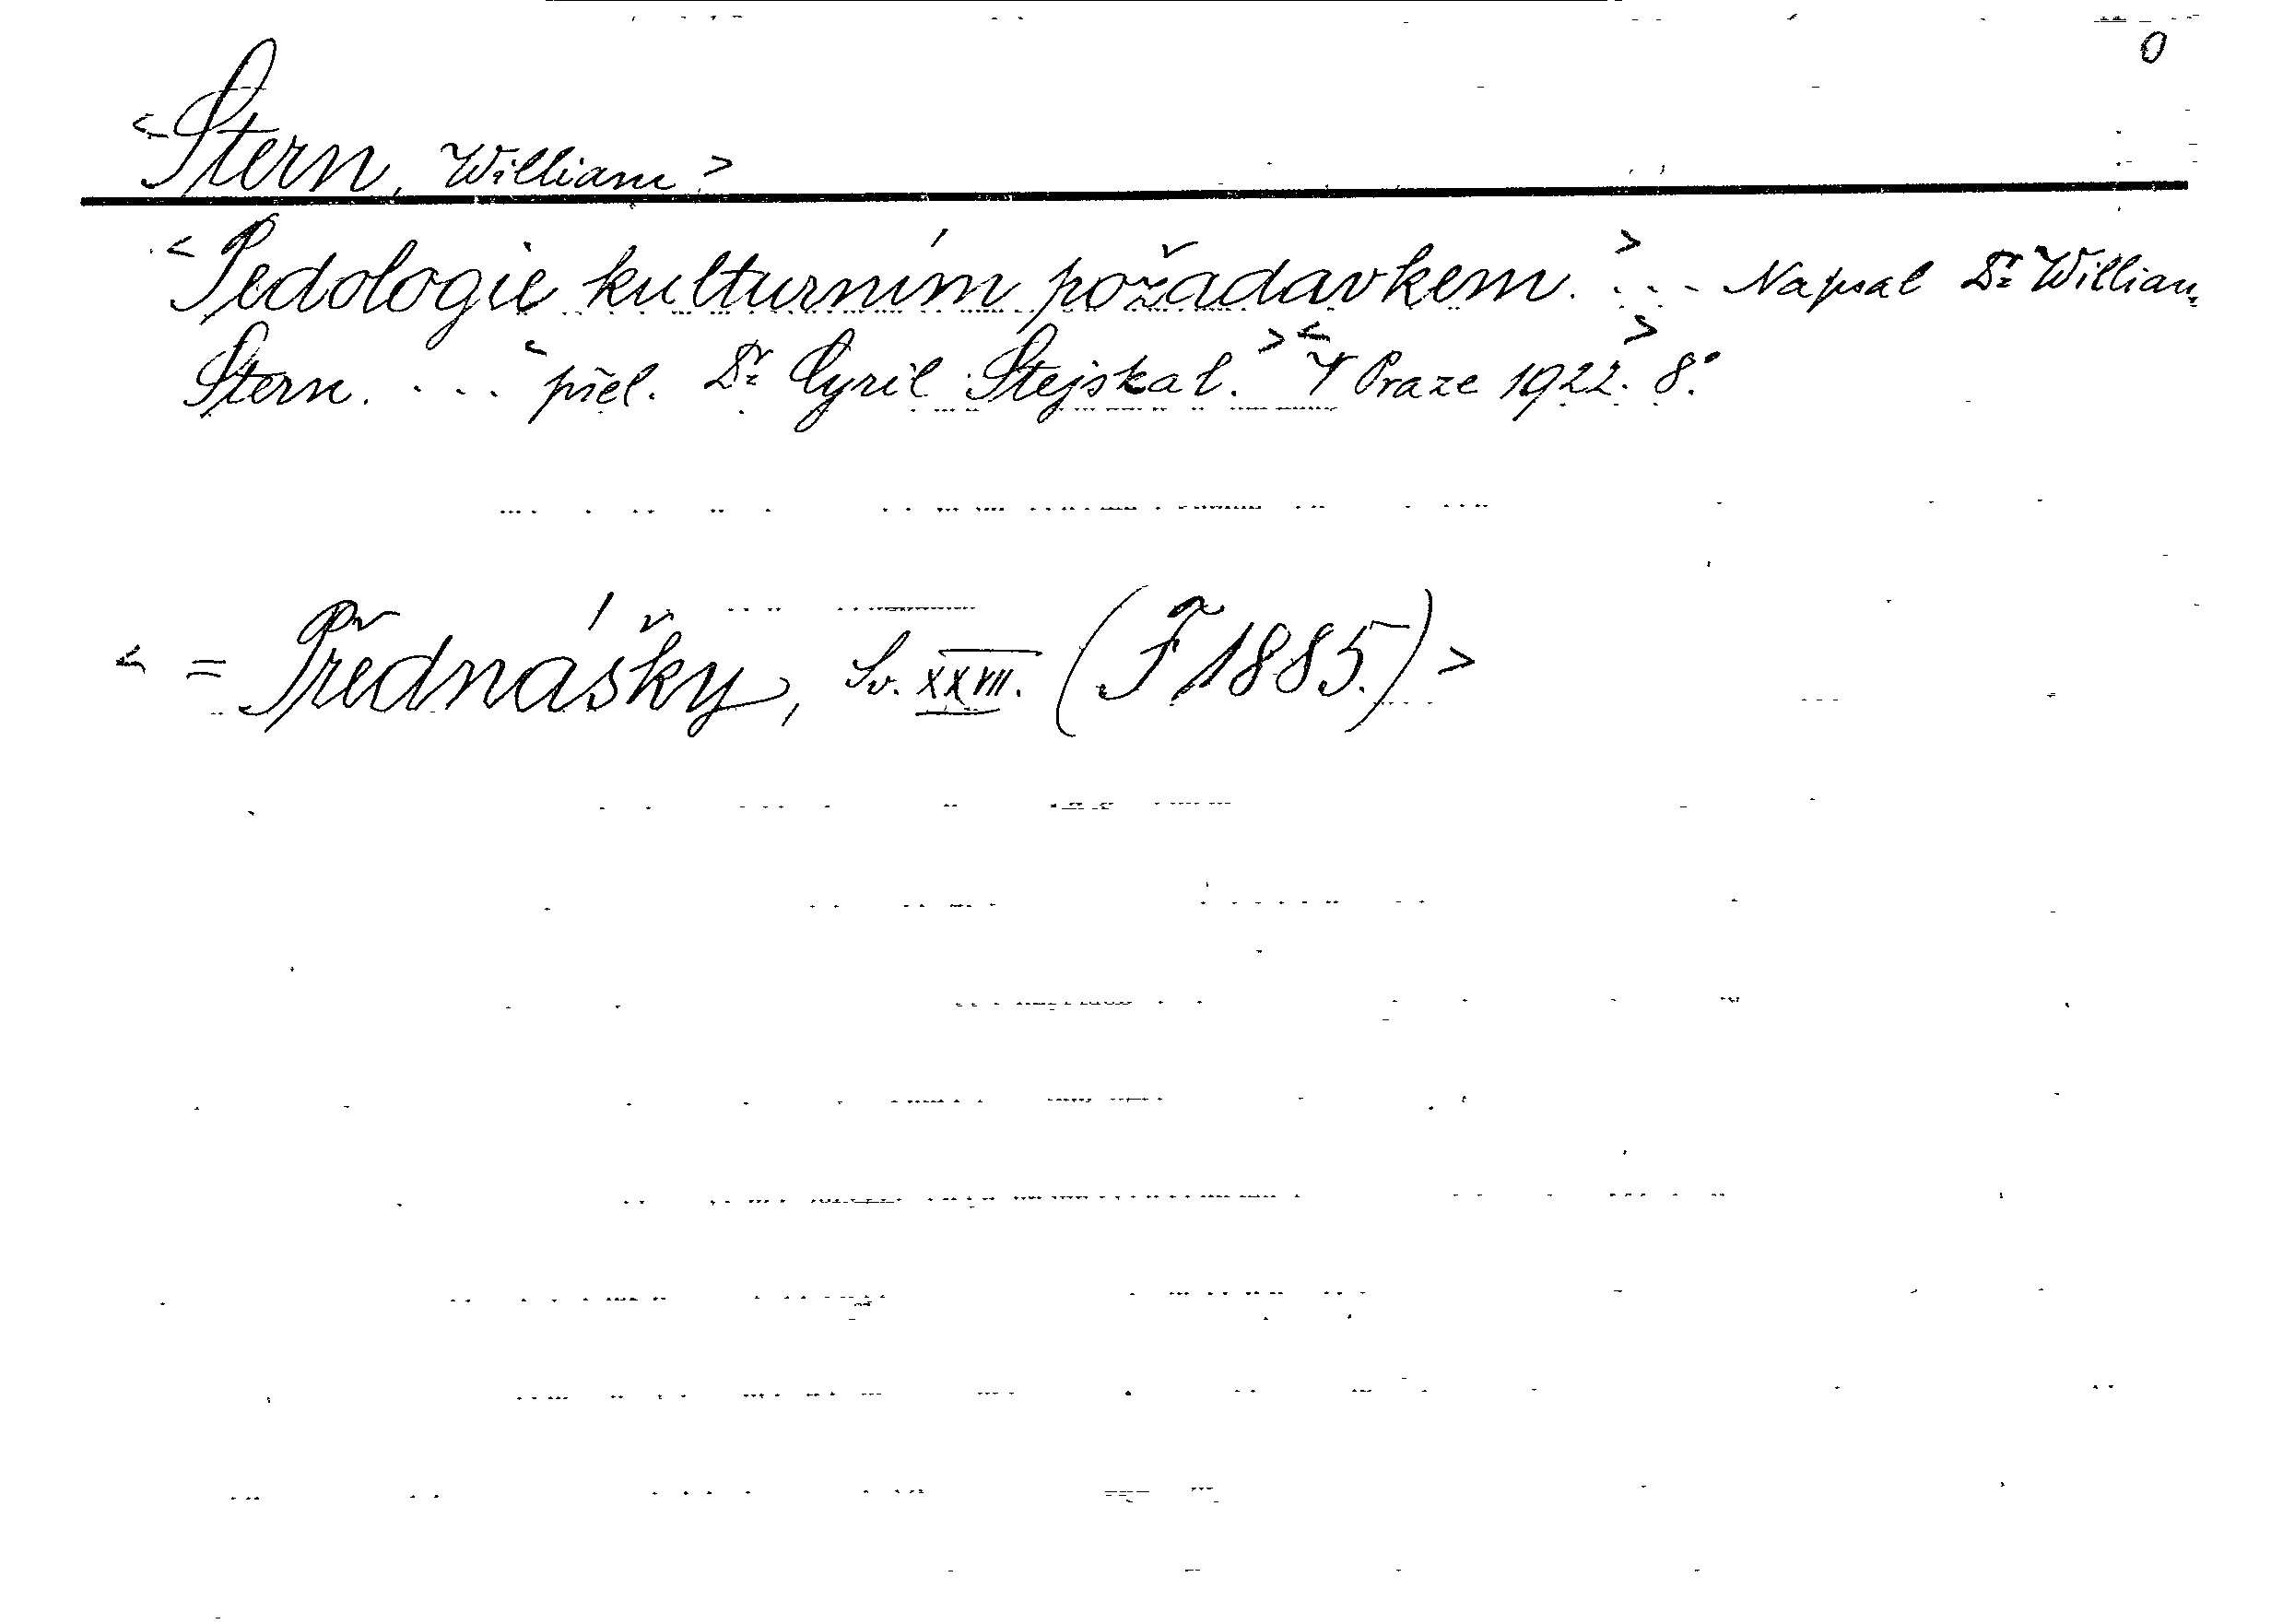 0
<Stern, William>
<Pedologie kulturním požadavkem.> ... Napsal Dr. William
Stern. ... <přel. Dr. Cyril Stejskal.> <V Praze 1922.> 8.°
< = Přednášky, Sv. XXVII. (F 1885.) >